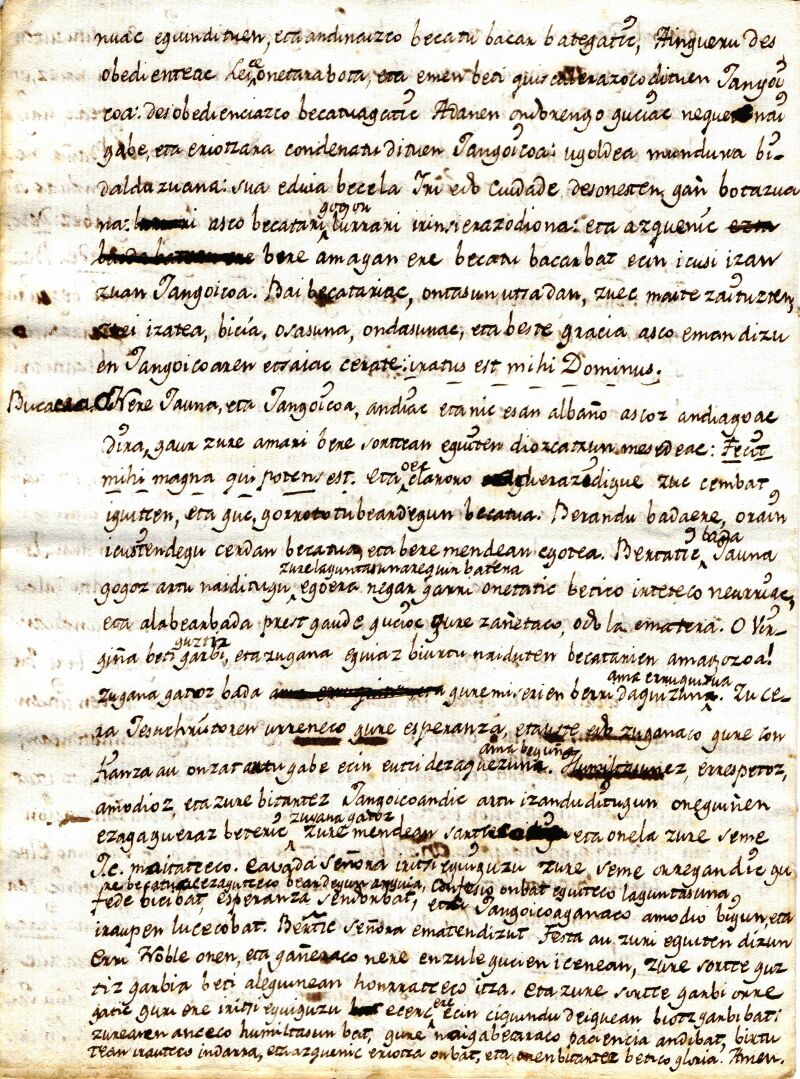 nuac eguindituen, eta andinaizco becatu bacar bategatic, Aingueru des
obedienteac Leiceonetara bota, eta emen beti quiscalerazocodituen Jangoi
coa: desobedienciazco becatuagatic Adanen ondorengo guciac neque nai
gabe, eta eriotzara condenatu dituen Jangoicoa: ugoldea mundura bi-
daldu zuana: sua eduia becela Iri edo Ciudade desonesten gañ botazua
na: asco becatari gogor lurrari irinsierazodiona: eta azquenic ezta
bere amagan ere becatu bacarbat ecin icusi izan
zuan Jangoicoa. Bai becatariac, ontasun utsa dan, zuec maite zaituzten,
izatea, bicia, osasuna, ondasunac, eta beste gracia asco eman dizu
en Jangoicoaren etsaiac cerate: iratus est mihi Dominus.
Nere Jauna, eta Jangoicoa, andiac eta nic esan albaño ascoz andiagoac
dira, gaur zure amari bere sortzean eguiten diozcatzun mesedeac: Fecit
mihi magna qui potens est. Eta oec claroro zuc cembat
iguitcen, eta guc gorrotatu beardegun becatua. Berandu bada ere, orain
icustendegu cerdan becatua, eta bere mendean egotea. Bertatic bada Jauna
gogoz artu naiditugu zure laguntasunarequin batera egoera negargarri onetatic betico irteteco neurriac,
eta ala bear bada prest gaude gucioc gure zañetaco, odola ematera. O Vir-
giña beti guztiz garbi, eta zugana eguiaz biurtu naiduten becatarien ama gozoa!
zugana gatoz bada gure miserien berri daquizuna ama erruquitsua. Zu ce-
ra Jesuchristoren urreneco gure esperanza, eta uste edo zuganaco gure con
fianza au onzat artu gabe ecin eutci dezaquezuna ama beguing. Humiltasunez, errespetoz,
amodioz, eta zure bitartez Jangoicoandic artu izanduditugun oneguinen
ezagagueraz beteric zugana gatoz zure mendean eta onela zure seme
J.C. maitatceco. Señora iritsi eguiguzu zure seme orregandic gu
re becatuac ezagutceco beardegun arguia, confesio onbat eguiteco laguntasuna,
fede bicibat, esperanza sendorbat, eta Jangoicoaganaco amodio bigun, eta
iraupen lucecobat. Bertic Señora ematendizut Festa au zuri eguiten dizun
Erri Noble onen, eta gañeraco nere enzulegucien icenean, zure sortce guz
tiz garbia beti aleguinean honrratceco itza. Eta zure sortce garbi orre
gatic guri ere iritsi eguiguzu ecerc ere ecin ciquindu deiquean biotz garbi bat;
zurearen anceco humiltasun bat, gure naigabetaraco paciencia andibat, birtu
tean irauteco indarra, eta azquenic eriotza onbat, eta onen bitartez betico gloria. Amen.